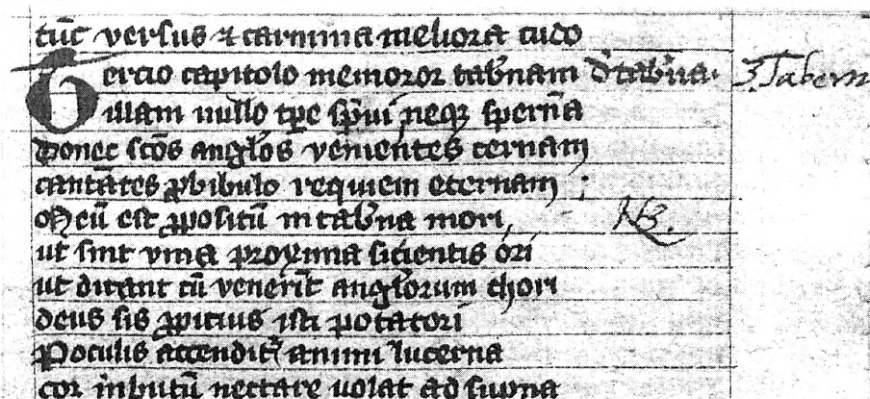 tūc versus ⁊ carmina meliora cudo
Tercio capitolo memoror tab̄nam d̄ tab̄na. 3. Tabern
illam nullo tp̄e sp̄ui neqꝫ sperna̅
Donec sc̄os angl̓os venientes cernam
cantātes ꝓ bibulo requiem eternam ;
Meū est ꝓpositū in tab̄na mori, NB.
ut sint vina proxima sicientis ori
ut dicant cū venerīt angl̓orum chori
deus sis ꝓpicius isti potatori
Poculis accendit᷑ animi lucerna
cor inbutū nectare uolat ad sup̄na